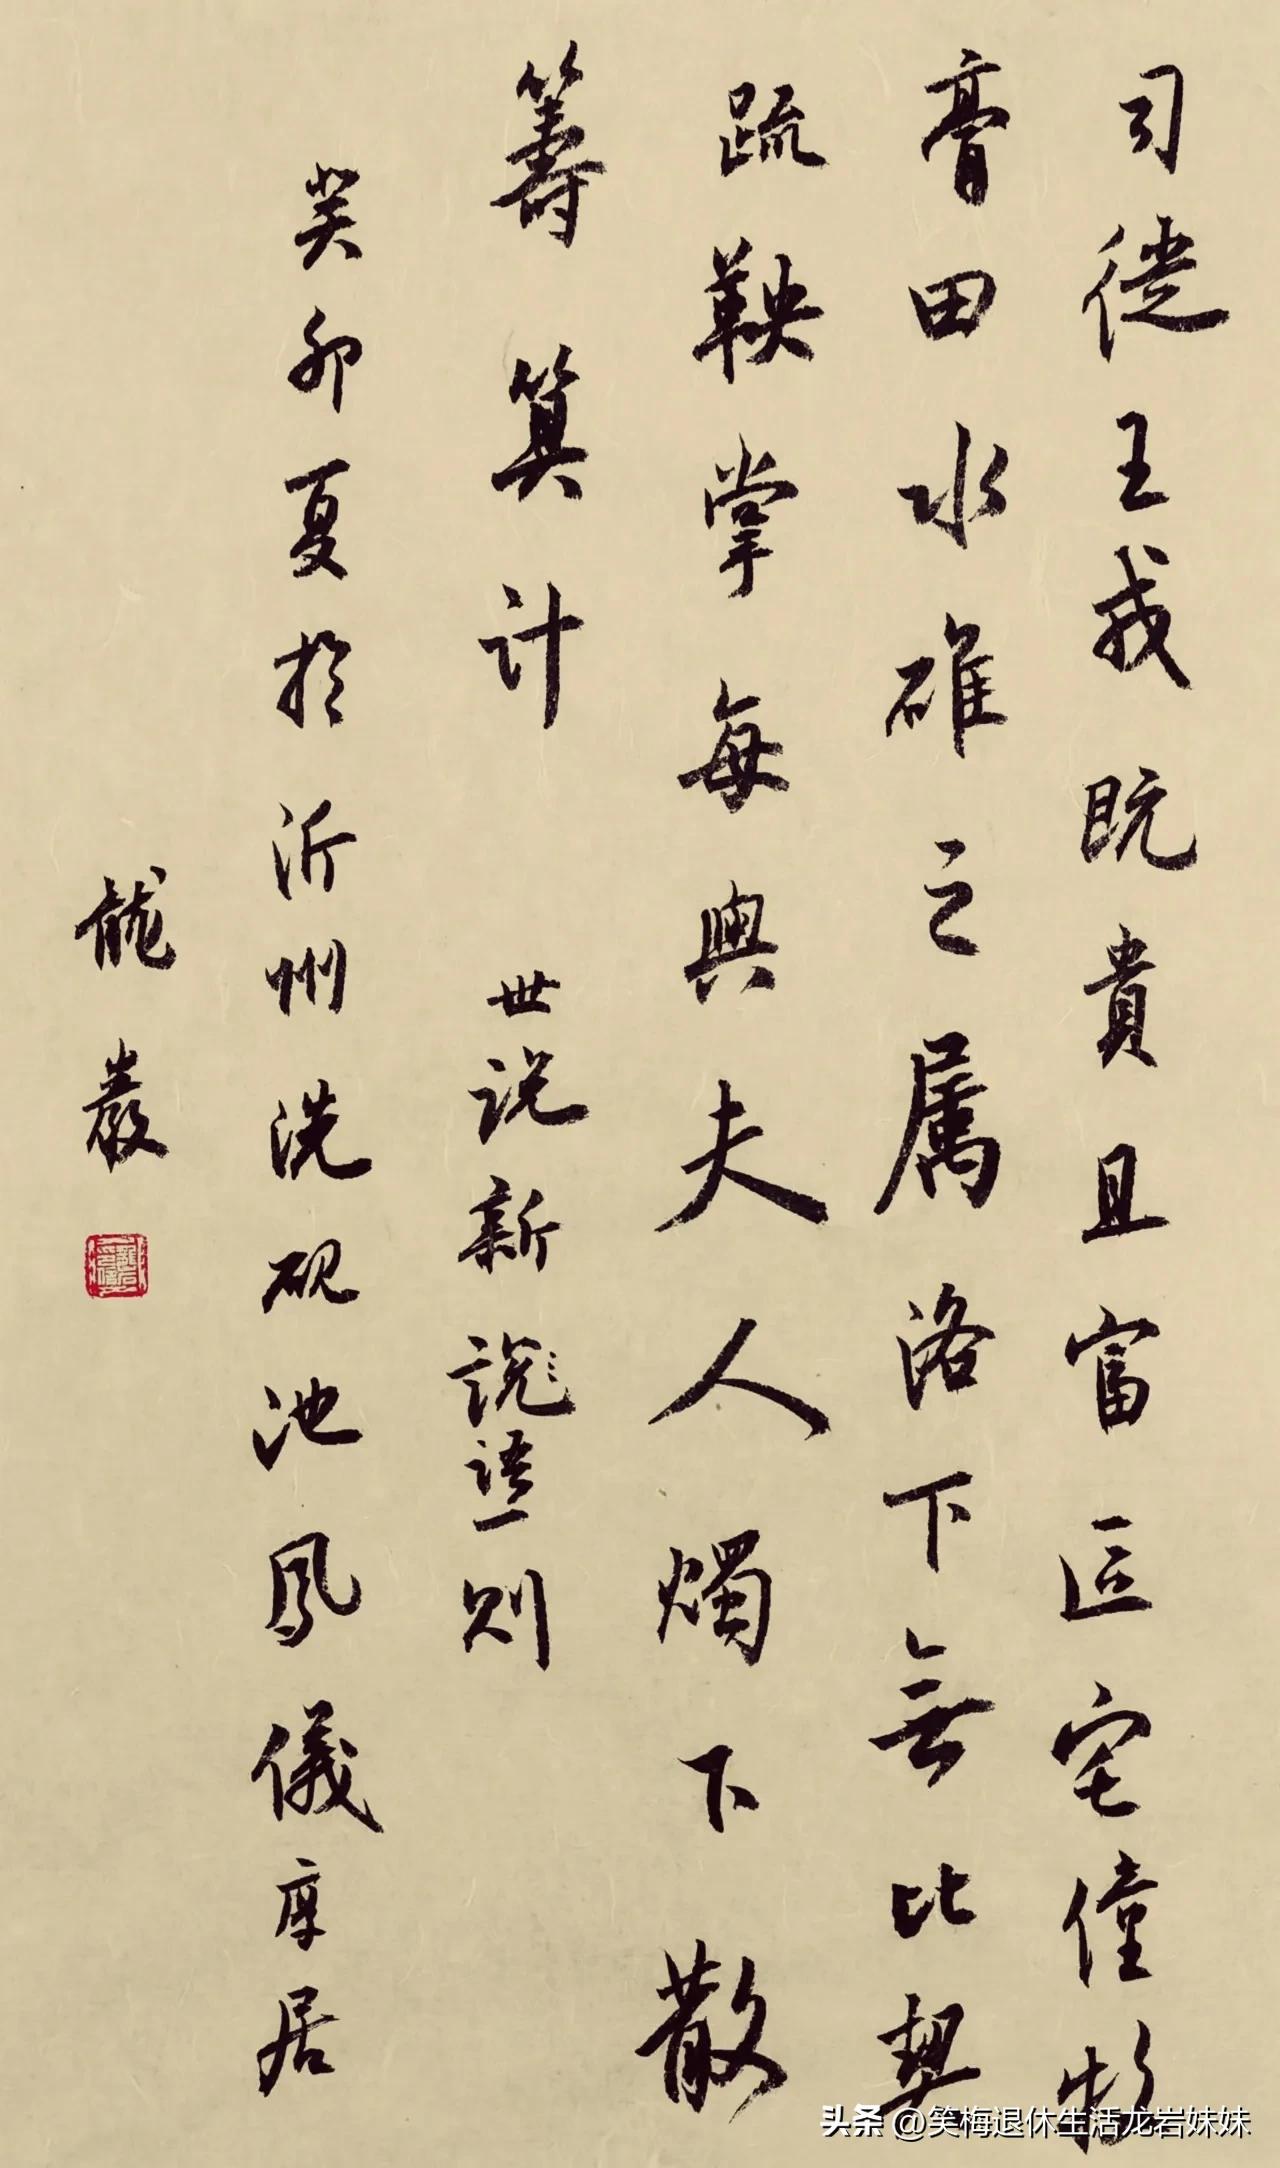 司徒王戎既貴且富區宅僮牧
膏田水碓之属洛下無比契
疏鞅掌每與夫人燭下散
籌算計
世说新説語一则
癸卯夏於沂州洗砚池鳳儀庠居
龍巖
头条 @笑梅退休生活龙岩妹妹